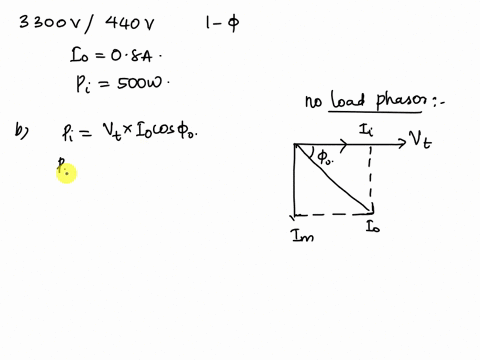 3300V / 440V 1-ϕ
I₀ = 0.8A.
Pᵢ = 500W.
no load phasor:-
b) Pᵢ = Vₜ × I₀cosϕ₀.
Pᵢ
Iᵢ Vₜ
ϕ₀.
Iₘ I₀